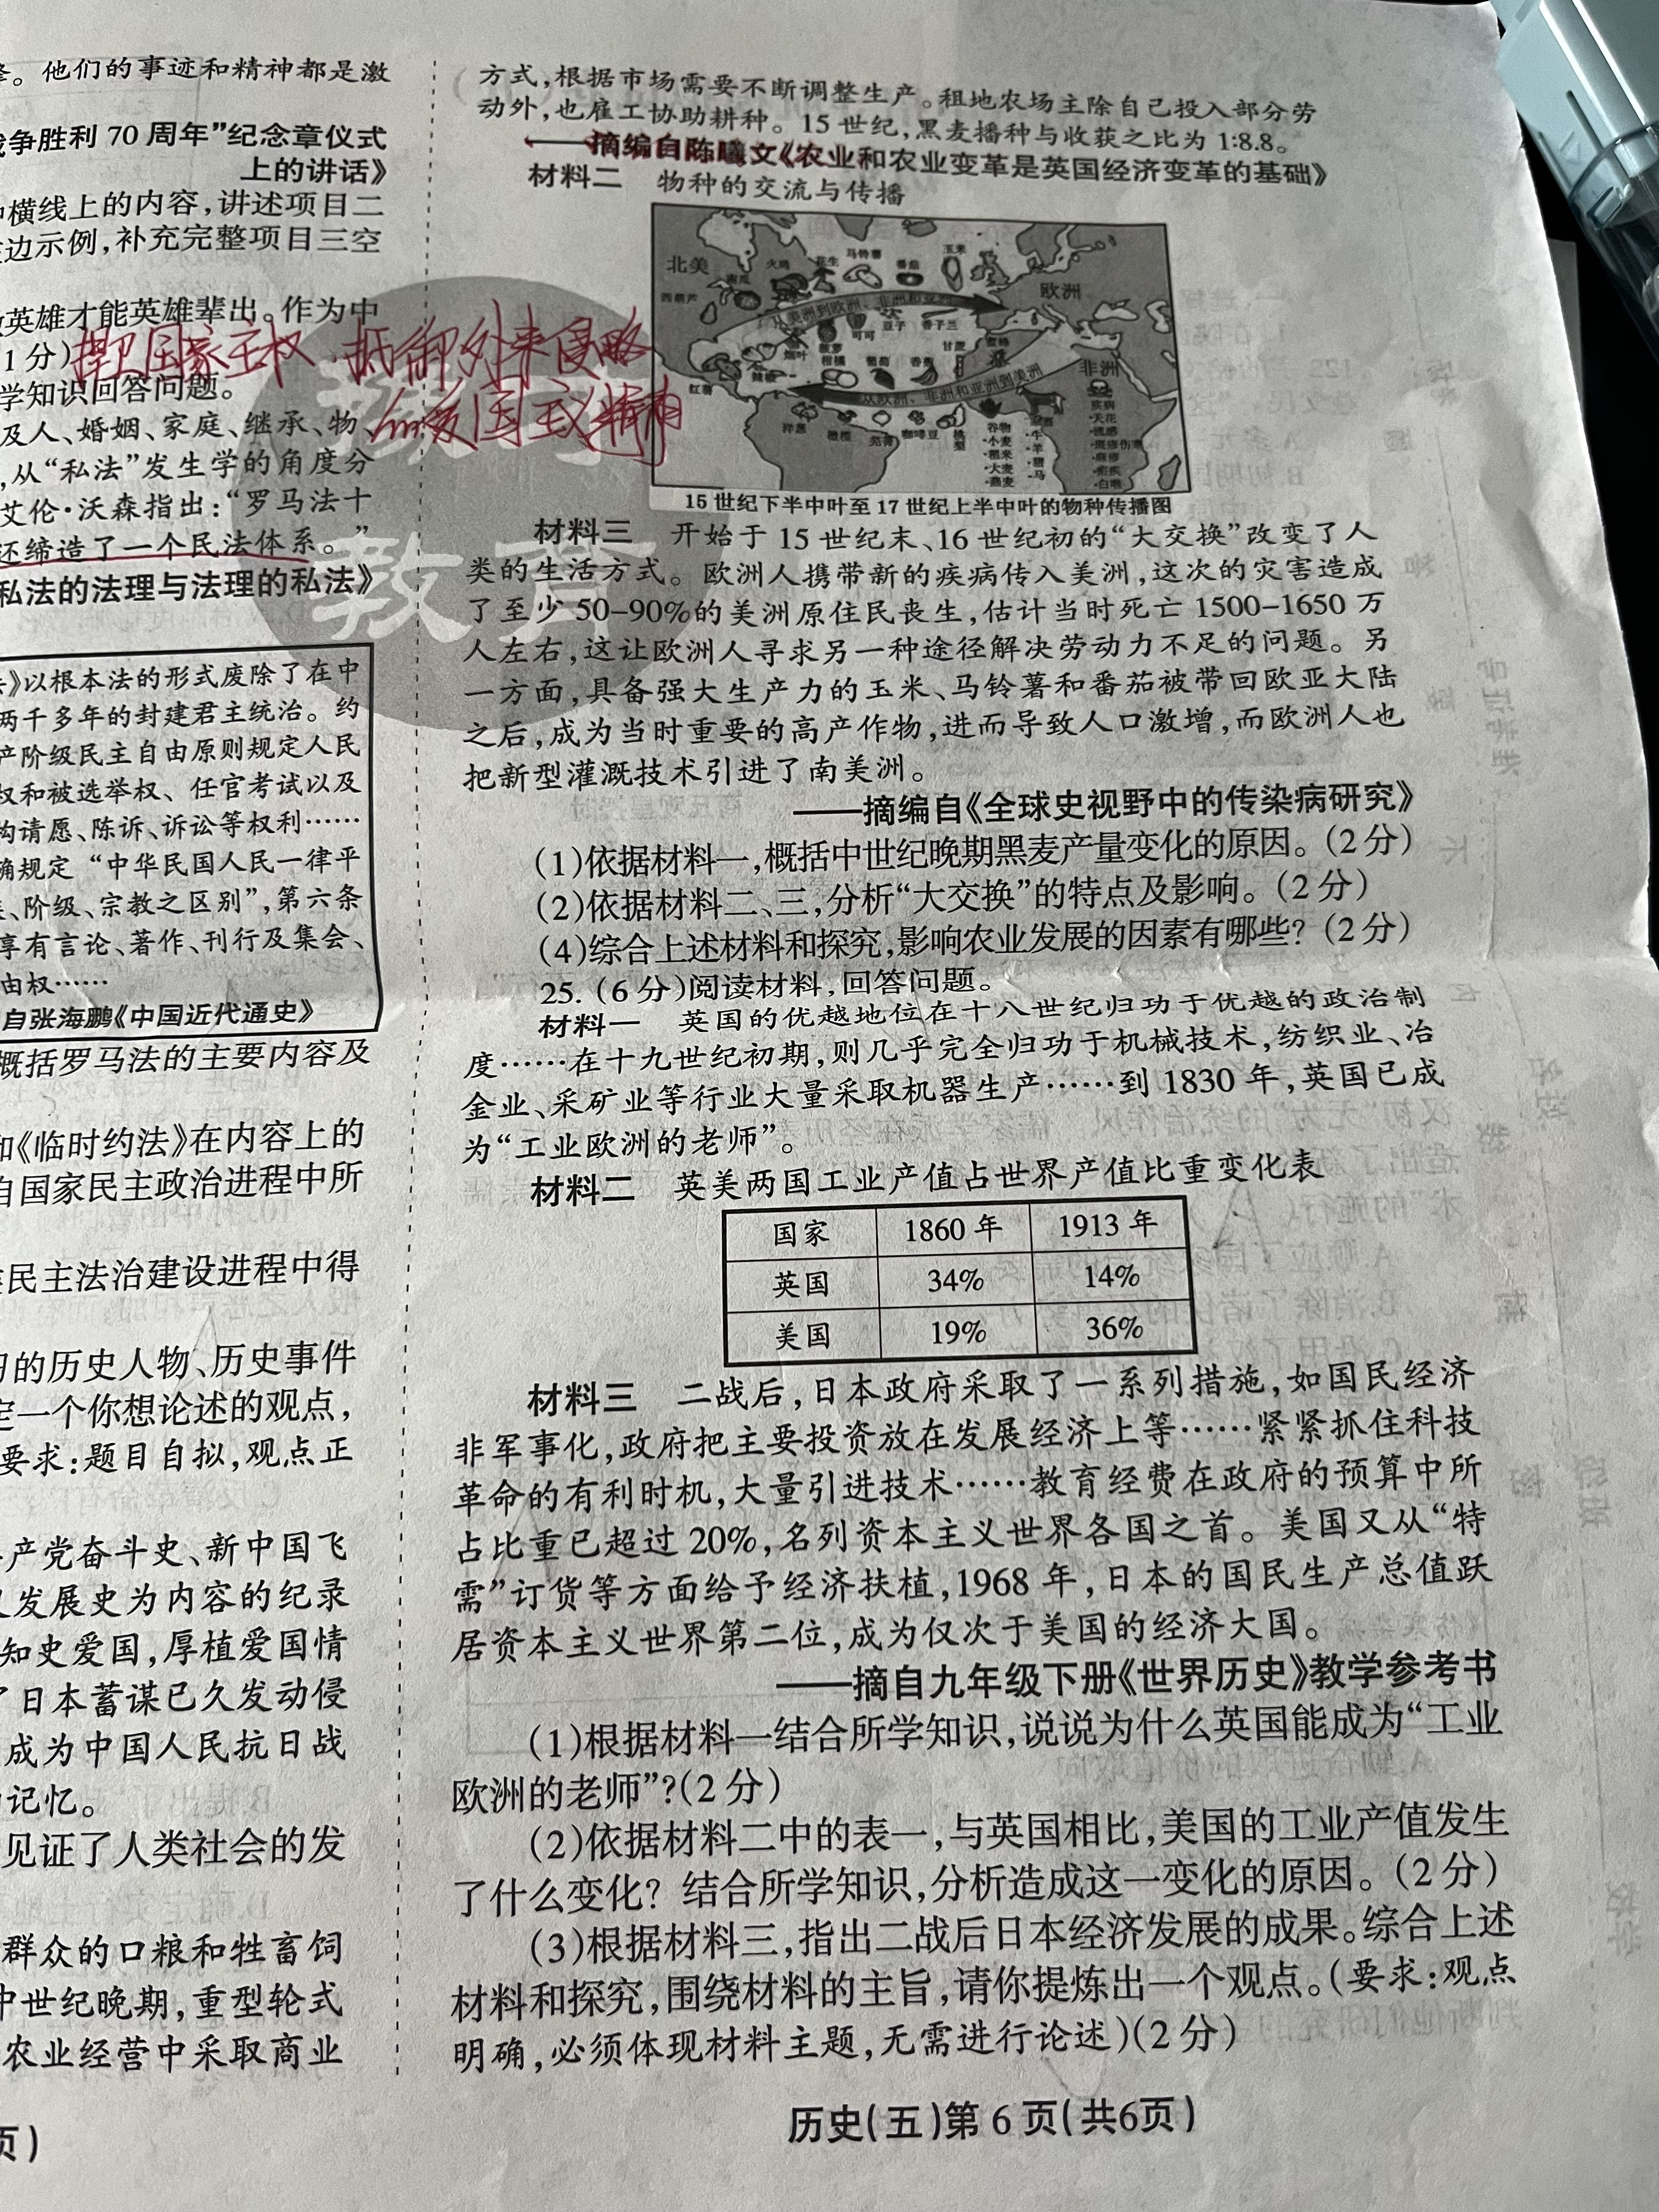 。他们的事迹和精神都是激
争胜利 70 周年”纪念章仪式
上的讲话》
横线上的内容,讲述项目二
边示例,补充完整项目三空
英雄才能英雄辈出。作为中
1 分)
捍卫国家主权 抵御外来侵略
的爱国主义精神
学知识回答问题。
及人、婚姻、家庭、继承、物、
,从“私法”发生学的角度分
艾伦·沃森指出:“罗马法十
还缔造了一个民法体系。”
私法的法理与法理的私法》
》以根本法的形式废除了在中
两千多年的封建君主统治。约
产阶级民主自由原则规定人民
权和被选举权、任官考试以及
构请愿、陈诉、诉讼等权利……
确规定 “中华民国人民一律平
、阶级、宗教之区别”,第六条
享有言论、著作、刊行及集会、
由权……
自张海鹏《中国近代通史》
概括罗马法的主要内容及
和《临时约法》在内容上的
自国家民主政治进程中所
民主法治建设进程中得
的历史人物、历史事件
定一个你想论述的观点,
要求:题目自拟,观点正
产党奋斗史、新中国飞
发展史为内容的纪录
知史爱国,厚植爱国情
了日本蓄谋已久发动侵
成为中国人民抗日战
记忆。
见证了人类社会的发
群众的口粮和牲畜饲
中世纪晚期,重型轮式
农业经营中采取商业
页)
教育
方式,根据市场需要不断调整生产。租地农场主除自己投入部分劳
动外,也雇工协助耕种。15 世纪,黑麦播种与收获之比为 1:8.8。
——摘编自陈曦文《农业和农业变革是英国经济变革的基础》
材料二 物种的交流与传播
北美
火鸡
花生
马铃薯
番茄
玉米
欧洲
南瓜
西葫芦
从美洲到欧洲、非洲和亚洲
可可
豆子
香子兰
烟叶
菠萝
柑橘
葡萄
香蕉
甘蔗
蜜蜂
非洲
红薯
辣椒
从欧洲、非洲和亚洲到美洲
洋葱
橄榄
芜菁
咖啡豆
桃梨
谷物
·小麦
·稻米
·大麦
·燕麦
·牛
·羊
·猪
·马
疾病
·天花
·流感
·斑疹伤寒
·麻疹
·疟疾
·白喉
15 世纪下半中叶至 17 世纪上半中叶的物种传播图
材料三 开始于 15 世纪末、16 世纪初的“大交换”改变了人
类的生活方式。欧洲人携带新的疾病传入美洲,这次的灾害造成
了至少 50-90%的美洲原住民丧生,估计当时死亡 1500-1650 万
人左右,这让欧洲人寻求另一种途径解决劳动力不足的问题。另
一方面,具备强大生产力的玉米、马铃薯和番茄被带回欧亚大陆
之后,成为当时重要的高产作物,进而导致人口激增,而欧洲人也
把新型灌溉技术引进了南美洲。
——摘编自《全球史视野中的传染病研究》
(1)依据材料一,概括中世纪晚期黑麦产量变化的原因。(2 分)
(2)依据材料二、三,分析“大交换”的特点及影响。(2 分)
(4)综合上述材料和探究,影响农业发展的因素有哪些?(2 分)
25. (6 分)阅读材料,回答问题。
材料一 英国的优越地位在十八世纪归功于优越的政治制
度……在十九世纪初期,则几乎完全归功于机械技术,纺织业、冶
金业、采矿业等行业大量采取机器生产……到 1830 年,英国已成
为“工业欧洲的老师”。
材料二 英美两国工业产值占世界产值比重变化表
国家 1860 年 1913 年
英国 34% 14%
美国 19% 36%
材料三 二战后,日本政府采取了一系列措施,如国民经济
非军事化,政府把主要投资放在发展经济上等……紧紧抓住科技
革命的有利时机,大量引进技术……教育经费在政府的预算中所
占比重已超过 20%,名列资本主义世界各国之首。美国又从“特
需”订货等方面给予经济扶植,1968 年,日本的国民生产总值跃
居资本主义世界第二位,成为仅次于美国的经济大国。
——摘自九年级下册《世界历史》教学参考书
(1)根据材料一结合所学知识,说说为什么英国能成为“工业
欧洲的老师”?(2 分)
(2)依据材料二中的表一,与英国相比,美国的工业产值发生
了什么变化? 结合所学知识,分析造成这一变化的原因。(2 分)
(3)根据材料三,指出二战后日本经济发展的成果。综合上述
材料和探究,围绕材料的主旨,请你提炼出一个观点。(要求:观点
明确,必须体现材料主题,无需进行论述)(2 分)
历史(五)第 6 页(共6页)